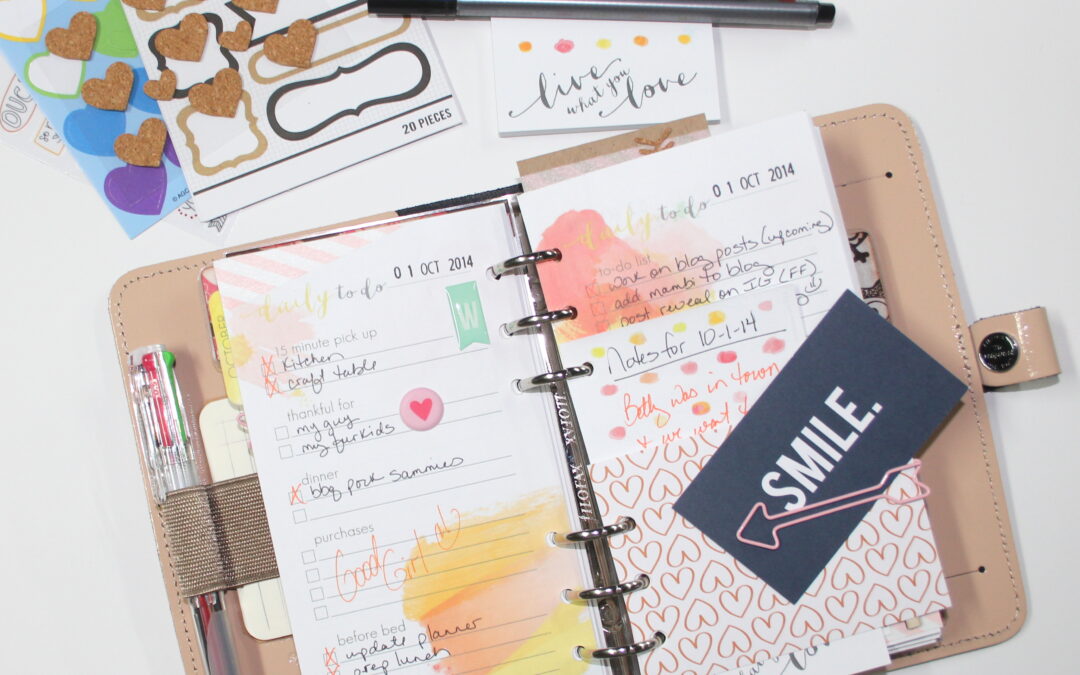 20 PIECES
live
what you
love
01 OCT 2014
daily to do
15 minute pick up
Kitchen
craft table
thankful for
my guy
my furkids
dinner
bbq pork sammies
purchases
Good Girl
before bed
update planner
prep lunch
W
OCTOBER
01 OCT 2014
daily to do
to-do list
work on blog posts (upcoming)
add mambi to blog
post reveal on IG (FF)
Notes for 10-1-14
Betty was in town
& we went
SMILE.